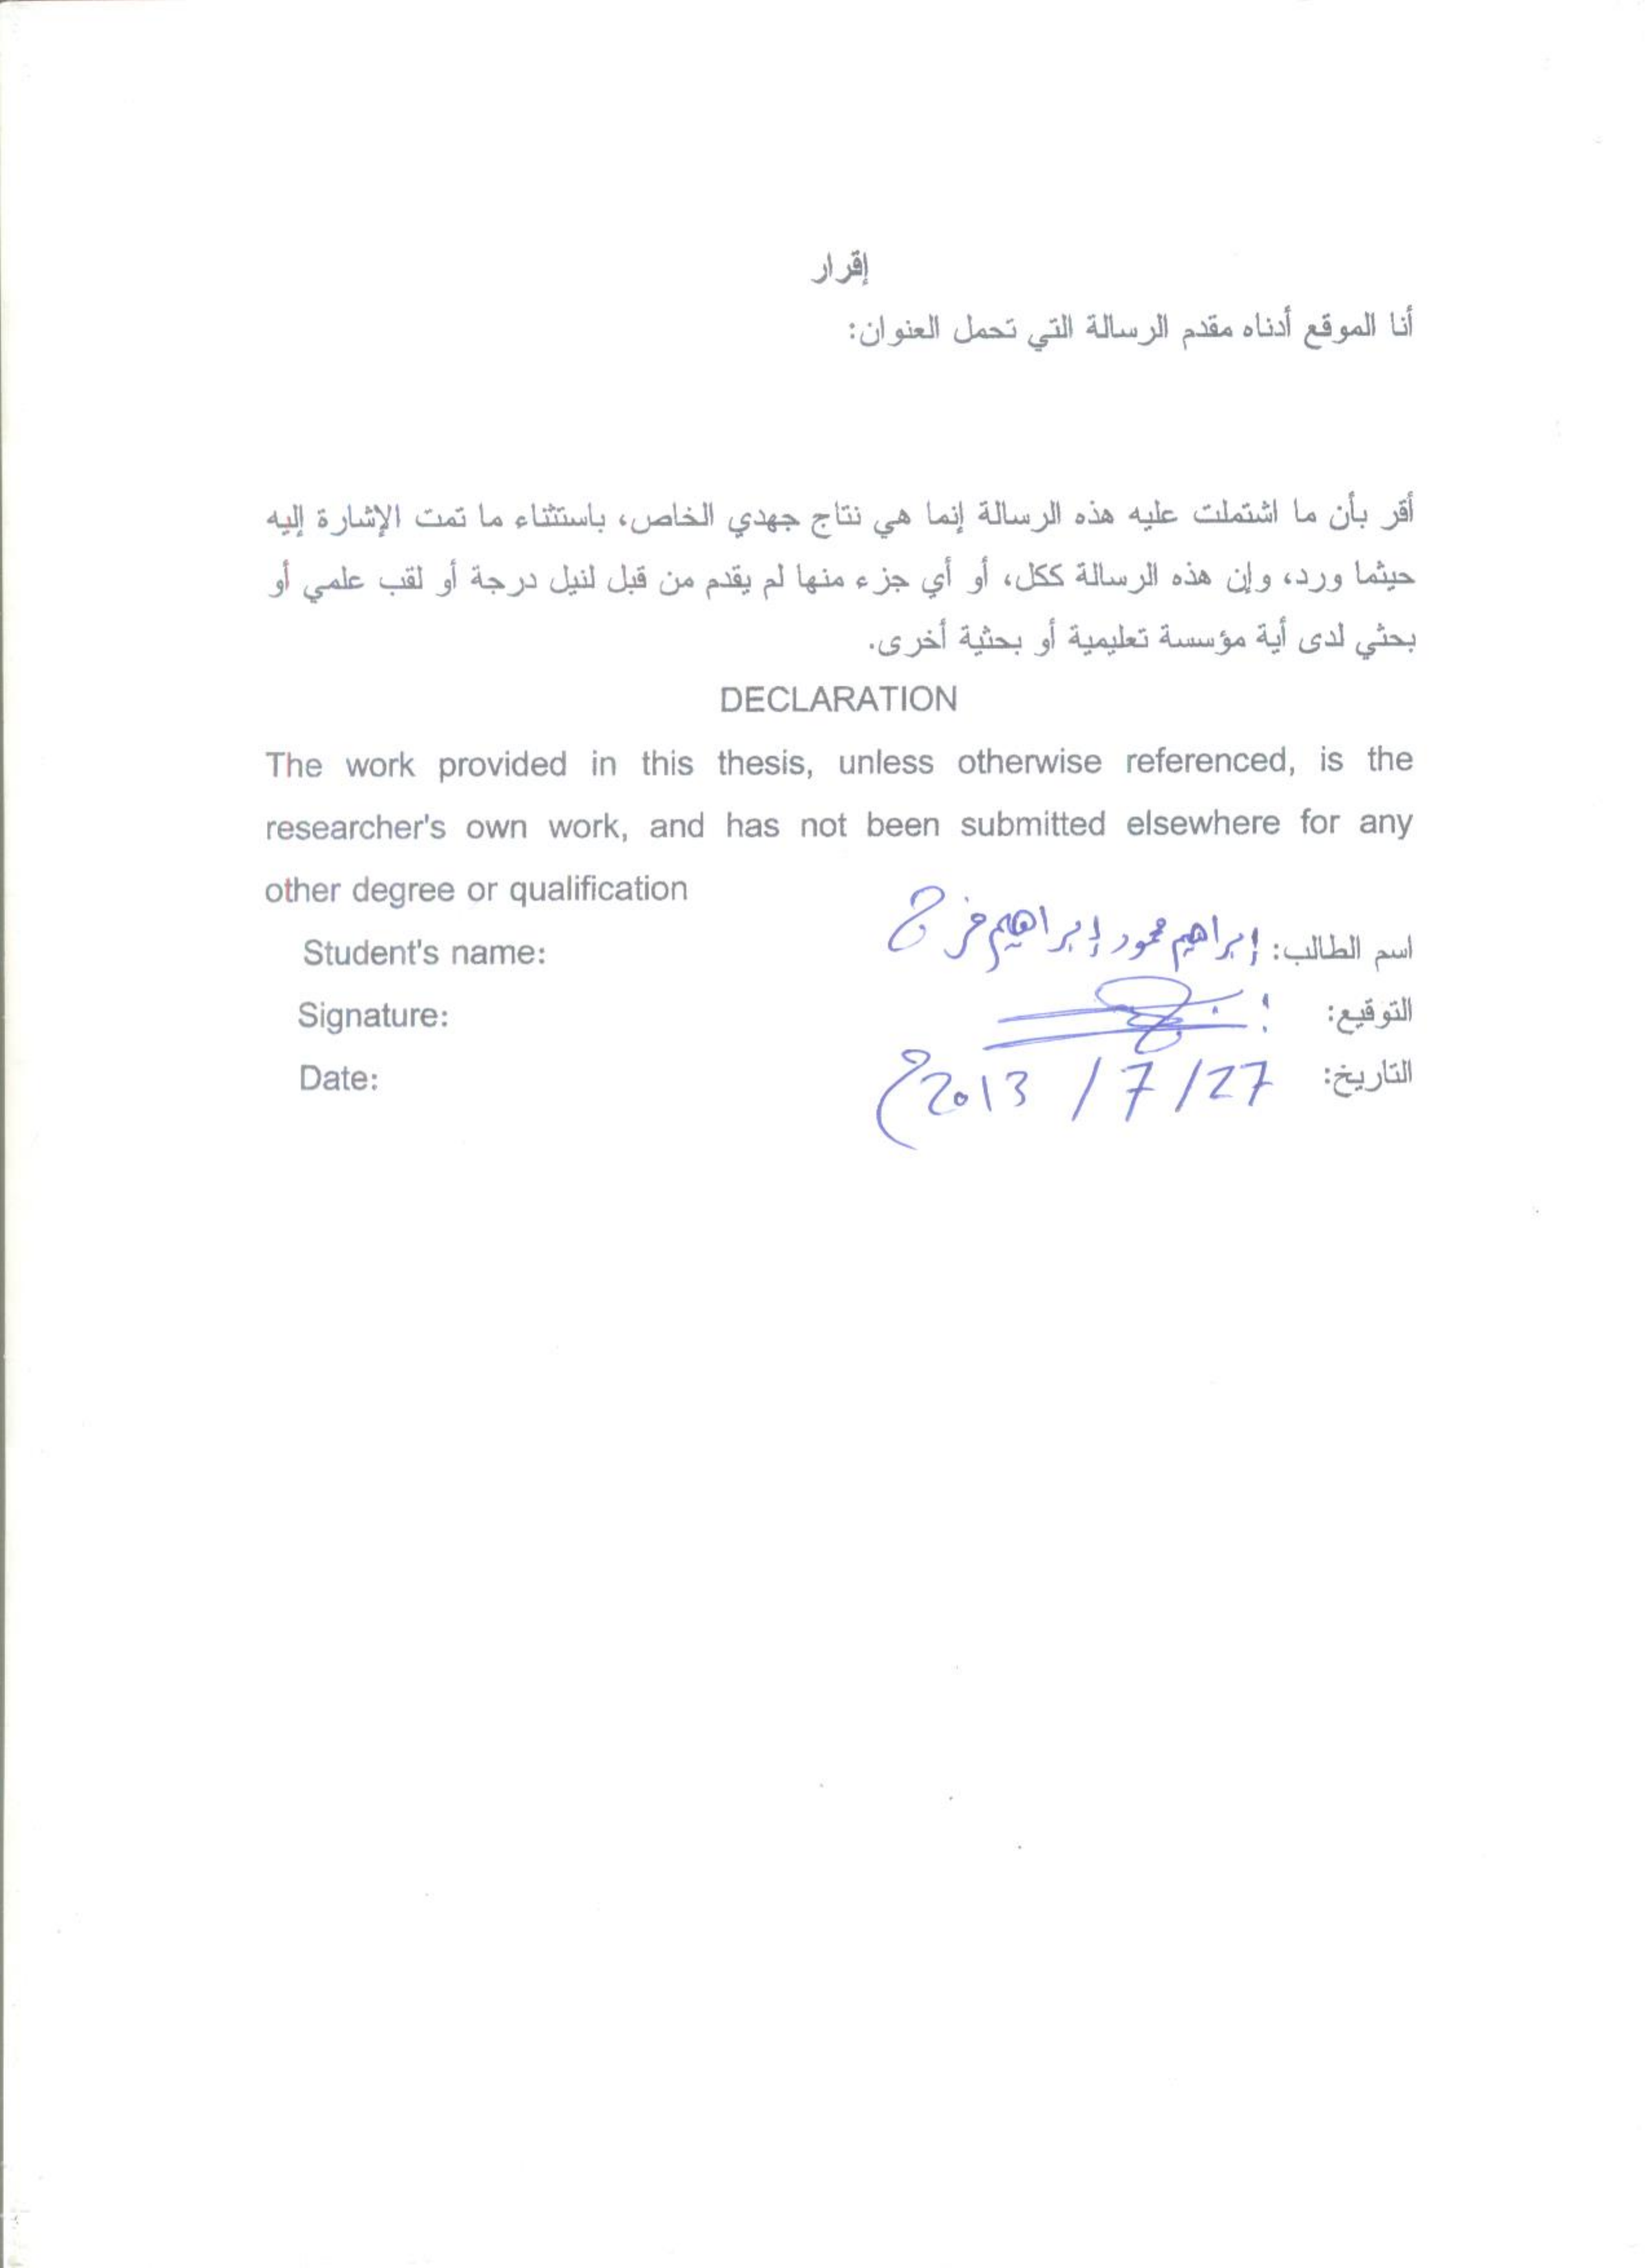 إقرار
أنا الموقع أدناه مقدم الرسالة التي تحمل العنوان:
أقر بأن ما اشتملت عليه هذه الرسالة إنما هي نتاج جهدي الخاص، باستثناء ما تمت الإشارة إليه
حيثما ورد، وإن هذه الرسالة ككل، أو أي جزء منها لم يقدم من قبل لنيل درجة أو لقب علمي أو
بحثي لدى أية مؤسسة تعليمية أو بحثية أخرى.
DECLARATION
The work provided in this thesis, unless otherwise referenced, is the
researcher's own work, and has not been submitted elsewhere for any
other degree or qualification
Student's name: اسم الطالب: إبراهيم محمود إبراهيم فرج
Signature: التوقيع:
Date: التاريخ: 27/7/2013م